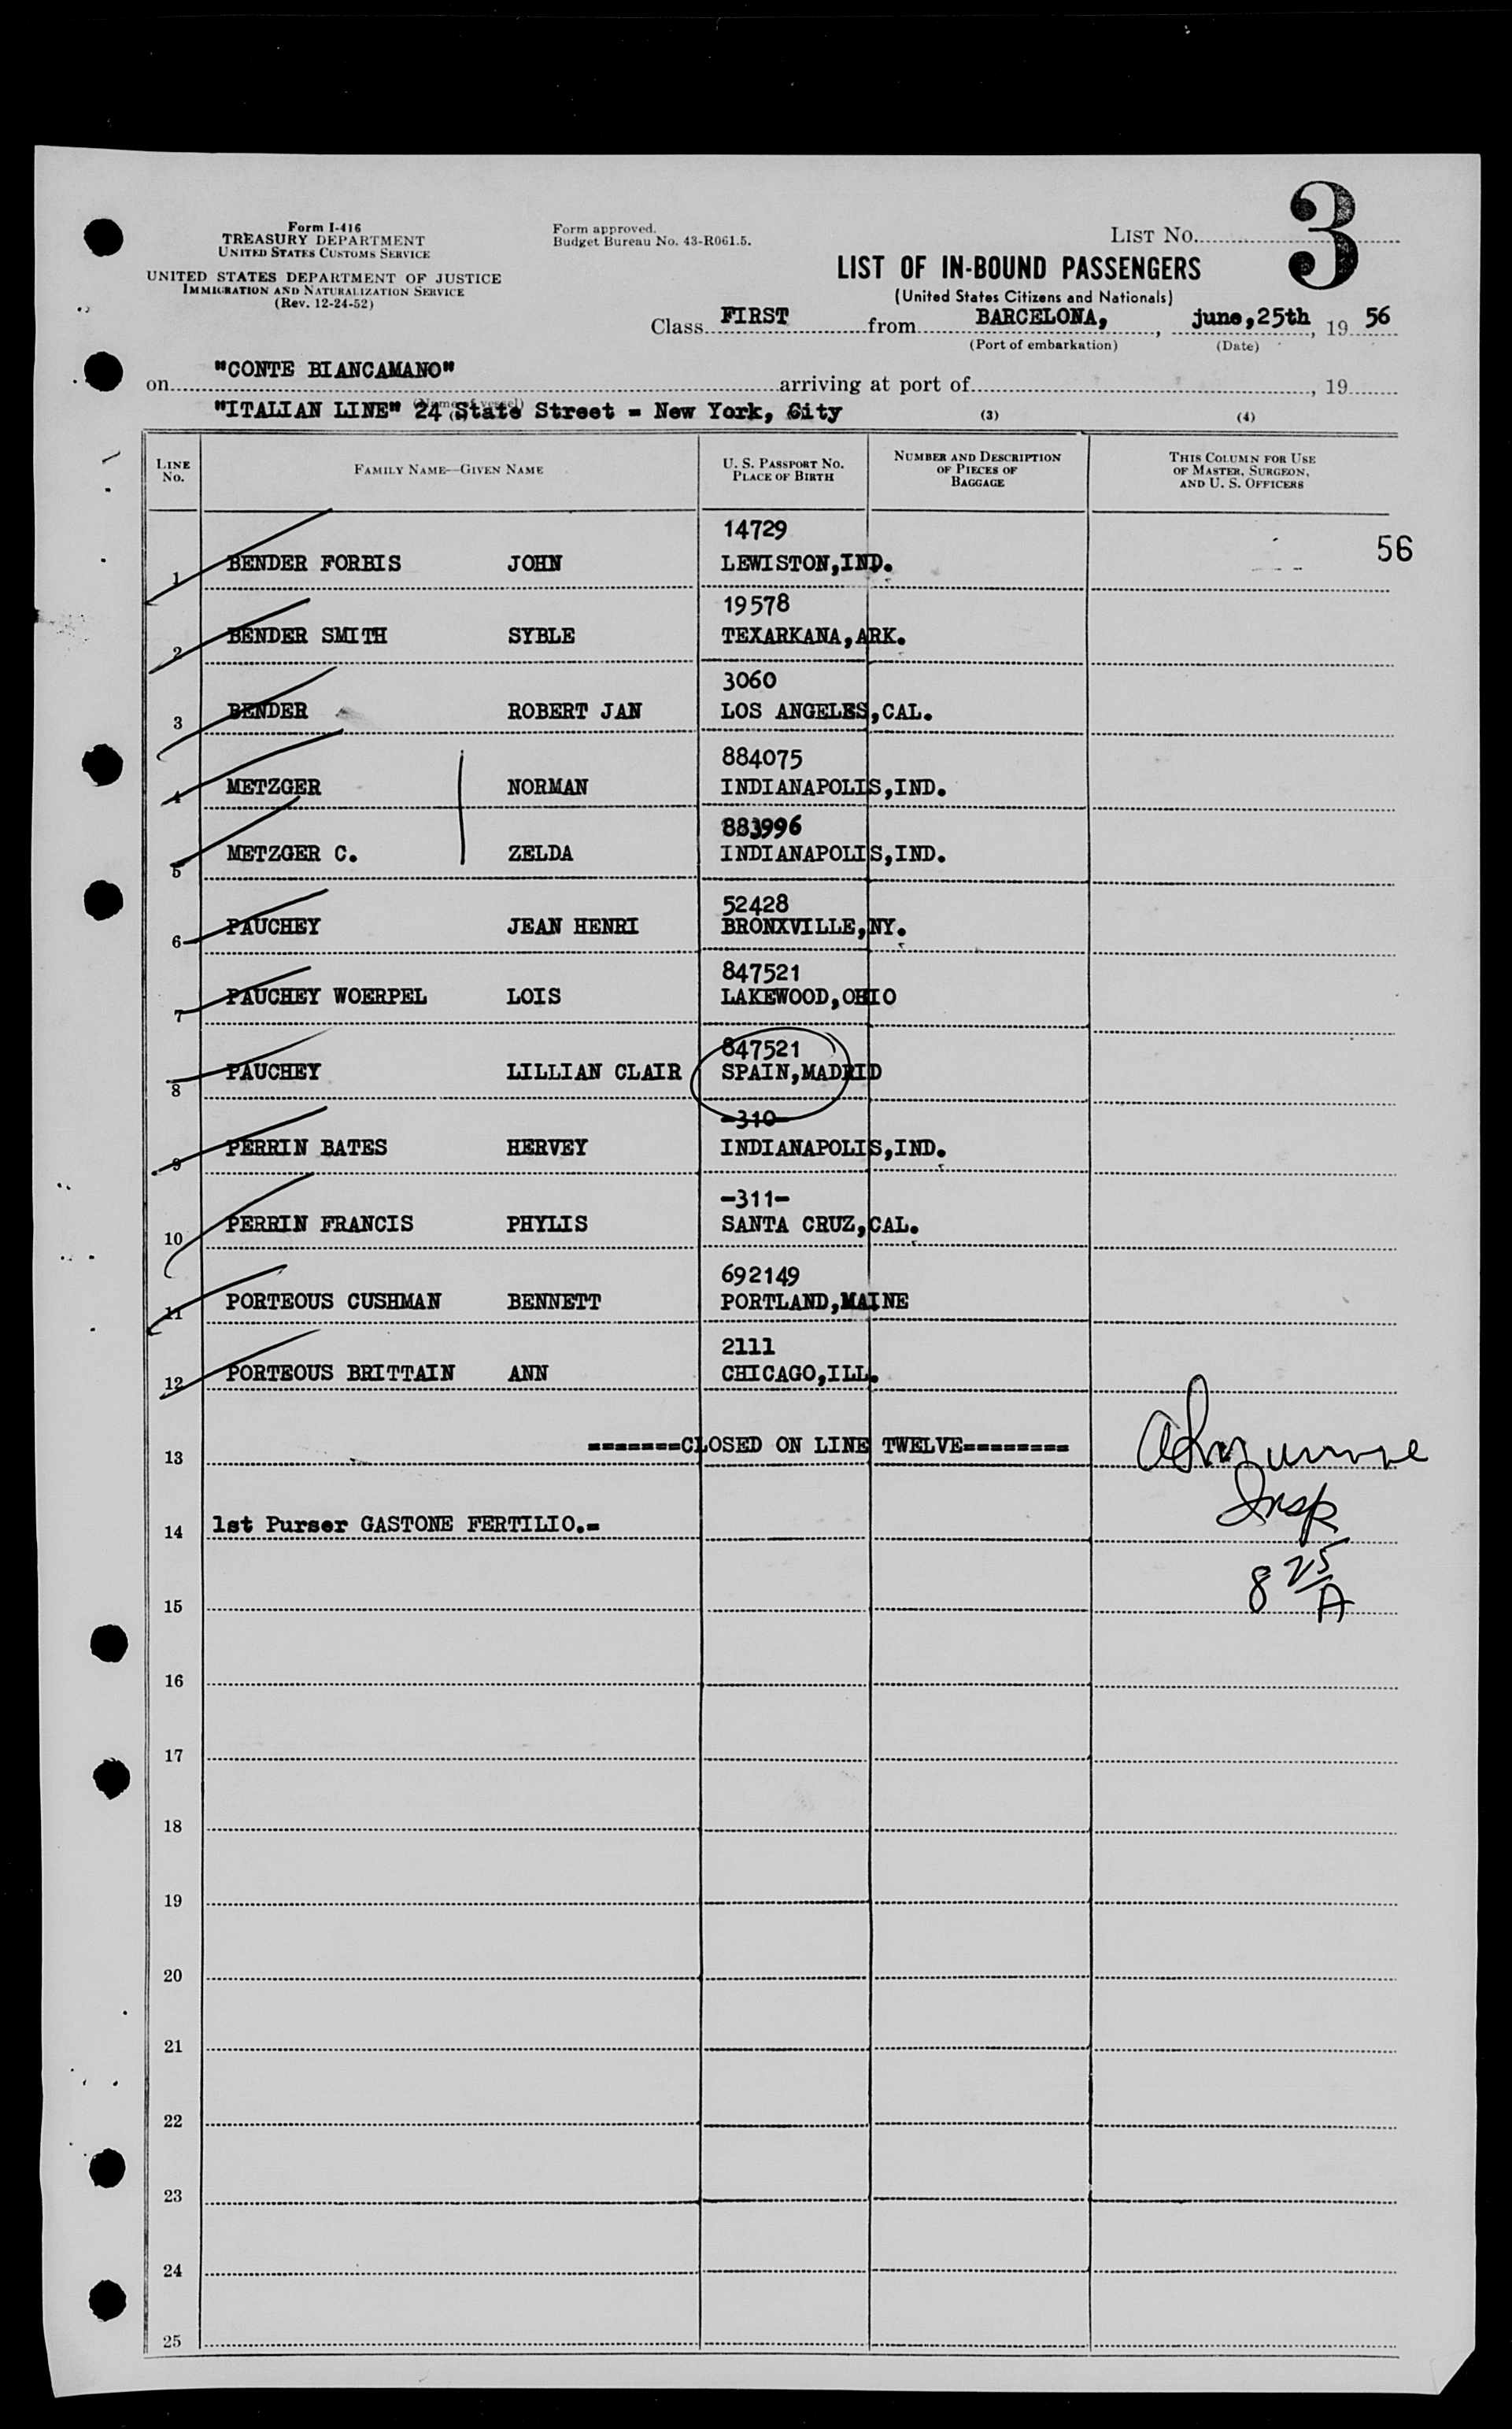 Form I-416
TREASURY DEPARTMENT
UNITED STATES CUSTOMS SERVICE
UNITED STATES DEPARTMENT OF JUSTICE
IMMIGRATION AND NATURALIZATION SERVICE
(Rev. 12-24-52)
Form approved.
Budget Bureau No. 43-R061.5.
LIST NO. 3
LIST OF IN-BOUND PASSENGERS
(United States Citizens and Nationals)
Class FIRST from BARCELONA, , june,25th, 19 56
(Port of embarkation) (Date)
on "CONTE BIANCAMANO" arriving at port of , 19
(Name of vessel)
"ITALIAN LINE" 24 State Street = New York, City (3) (4)
LINE NO. FAMILY NAME—GIVEN NAME U. S. PASSPORT NO. PLACE OF BIRTH NUMBER AND DESCRIPTION OF PIECES OF BAGGAGE THIS COLUMN FOR USE OF MASTER, SURGEON, AND U. S. OFFICERS
14729
56
1 BENDER FORBIS JOHN LEWISTON,IND.
19578
2 BENDER SMITH SYBLE TEXARKANA,ARK.
3060
3 BENDER ROBERT JAN LOS ANGELES,CAL.
884075
4 METZGER NORMAN INDIANAPOLIS,IND.
883996
5 METZGER C. ZELDA INDIANAPOLIS,IND.
52428
6 PAUCHEY JEAN HENRI BRONXVILLE,NY.
847521
7 PAUCHEY WOERPEL LOIS LAKEWOOD,OHIO
847521
8 PAUCHEY LILLIAN CLAIR SPAIN,MADRID
-310-
9 PERRIN BATES HERVEY INDIANAPOLIS,IND.
-311-
10 PERRIN FRANCIS PHYLIS SANTA CRUZ,CAL.
692149
11 PORTEOUS CUSHMAN BENNETT PORTLAND,MAINE
2111
12 PORTEOUS BRITTAIN ANN CHICAGO,ILL.
13 =======CLOSED ON LINE TWELVE========
Insp
14 1st Purser GASTONE FERTILIO.=
8 25/A
15
16
17
18
19
20
21
22
23
24
25